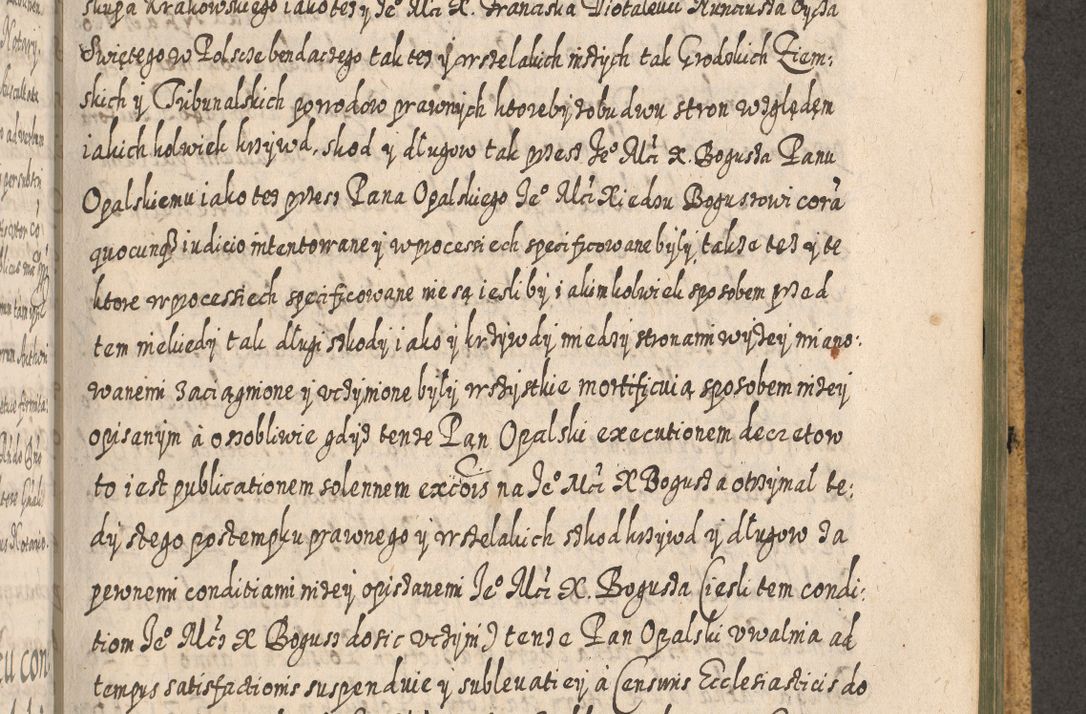 skupa Krakowskiego iako też y Je° Mći X. Franciska Diotalevii Nunciusza Oyca
Swiętego w Polscze bendaczego tak też y wszelakich inszych tak Grodskich Ziem:
skich y Tribunalskich powodow prawnych ktoreby z obu dwu stron względem
iakich kolwiek krzywd, szkod y długow tak przez Je° Mći X. Bogusza Panu
Opalskiemu iako też przez Pana Opalskiego Je° Mći Xiedzu Boguszowi corā
quocunq3 iudicio intentowane y w processiech specificowane były także też y te
ktore w processiech specificowane nie są iesliby iakimkolwiek sposobem przed
tem niekiedy tak długi szkody iako y krzywdy miedzy stronami wyżey miano:
wanemi zaciągnione y uczynione były wszystkie mortificuią sposobem niżey
opisanym à osobliwie gdyż tenże Pan Opalski executionem decretow
to iest publicationem solennem excõis na Je° Mći X Bogusza otrzymał te:
dy z tego postempku prawnego y wszelakich szkod krzywd y długow za
pewnemi conditiami niżey opiszanemi Je° Mći X. Bogusza (iesli tem condi:
tiom Je° Mći X Bogusz dosic uczyni) tenże Pan Opalski uwalnia ad
tempus satisfactionis suspenduie y sublevati ey à Censuris Ecclesiasticis do
Notary
eu con